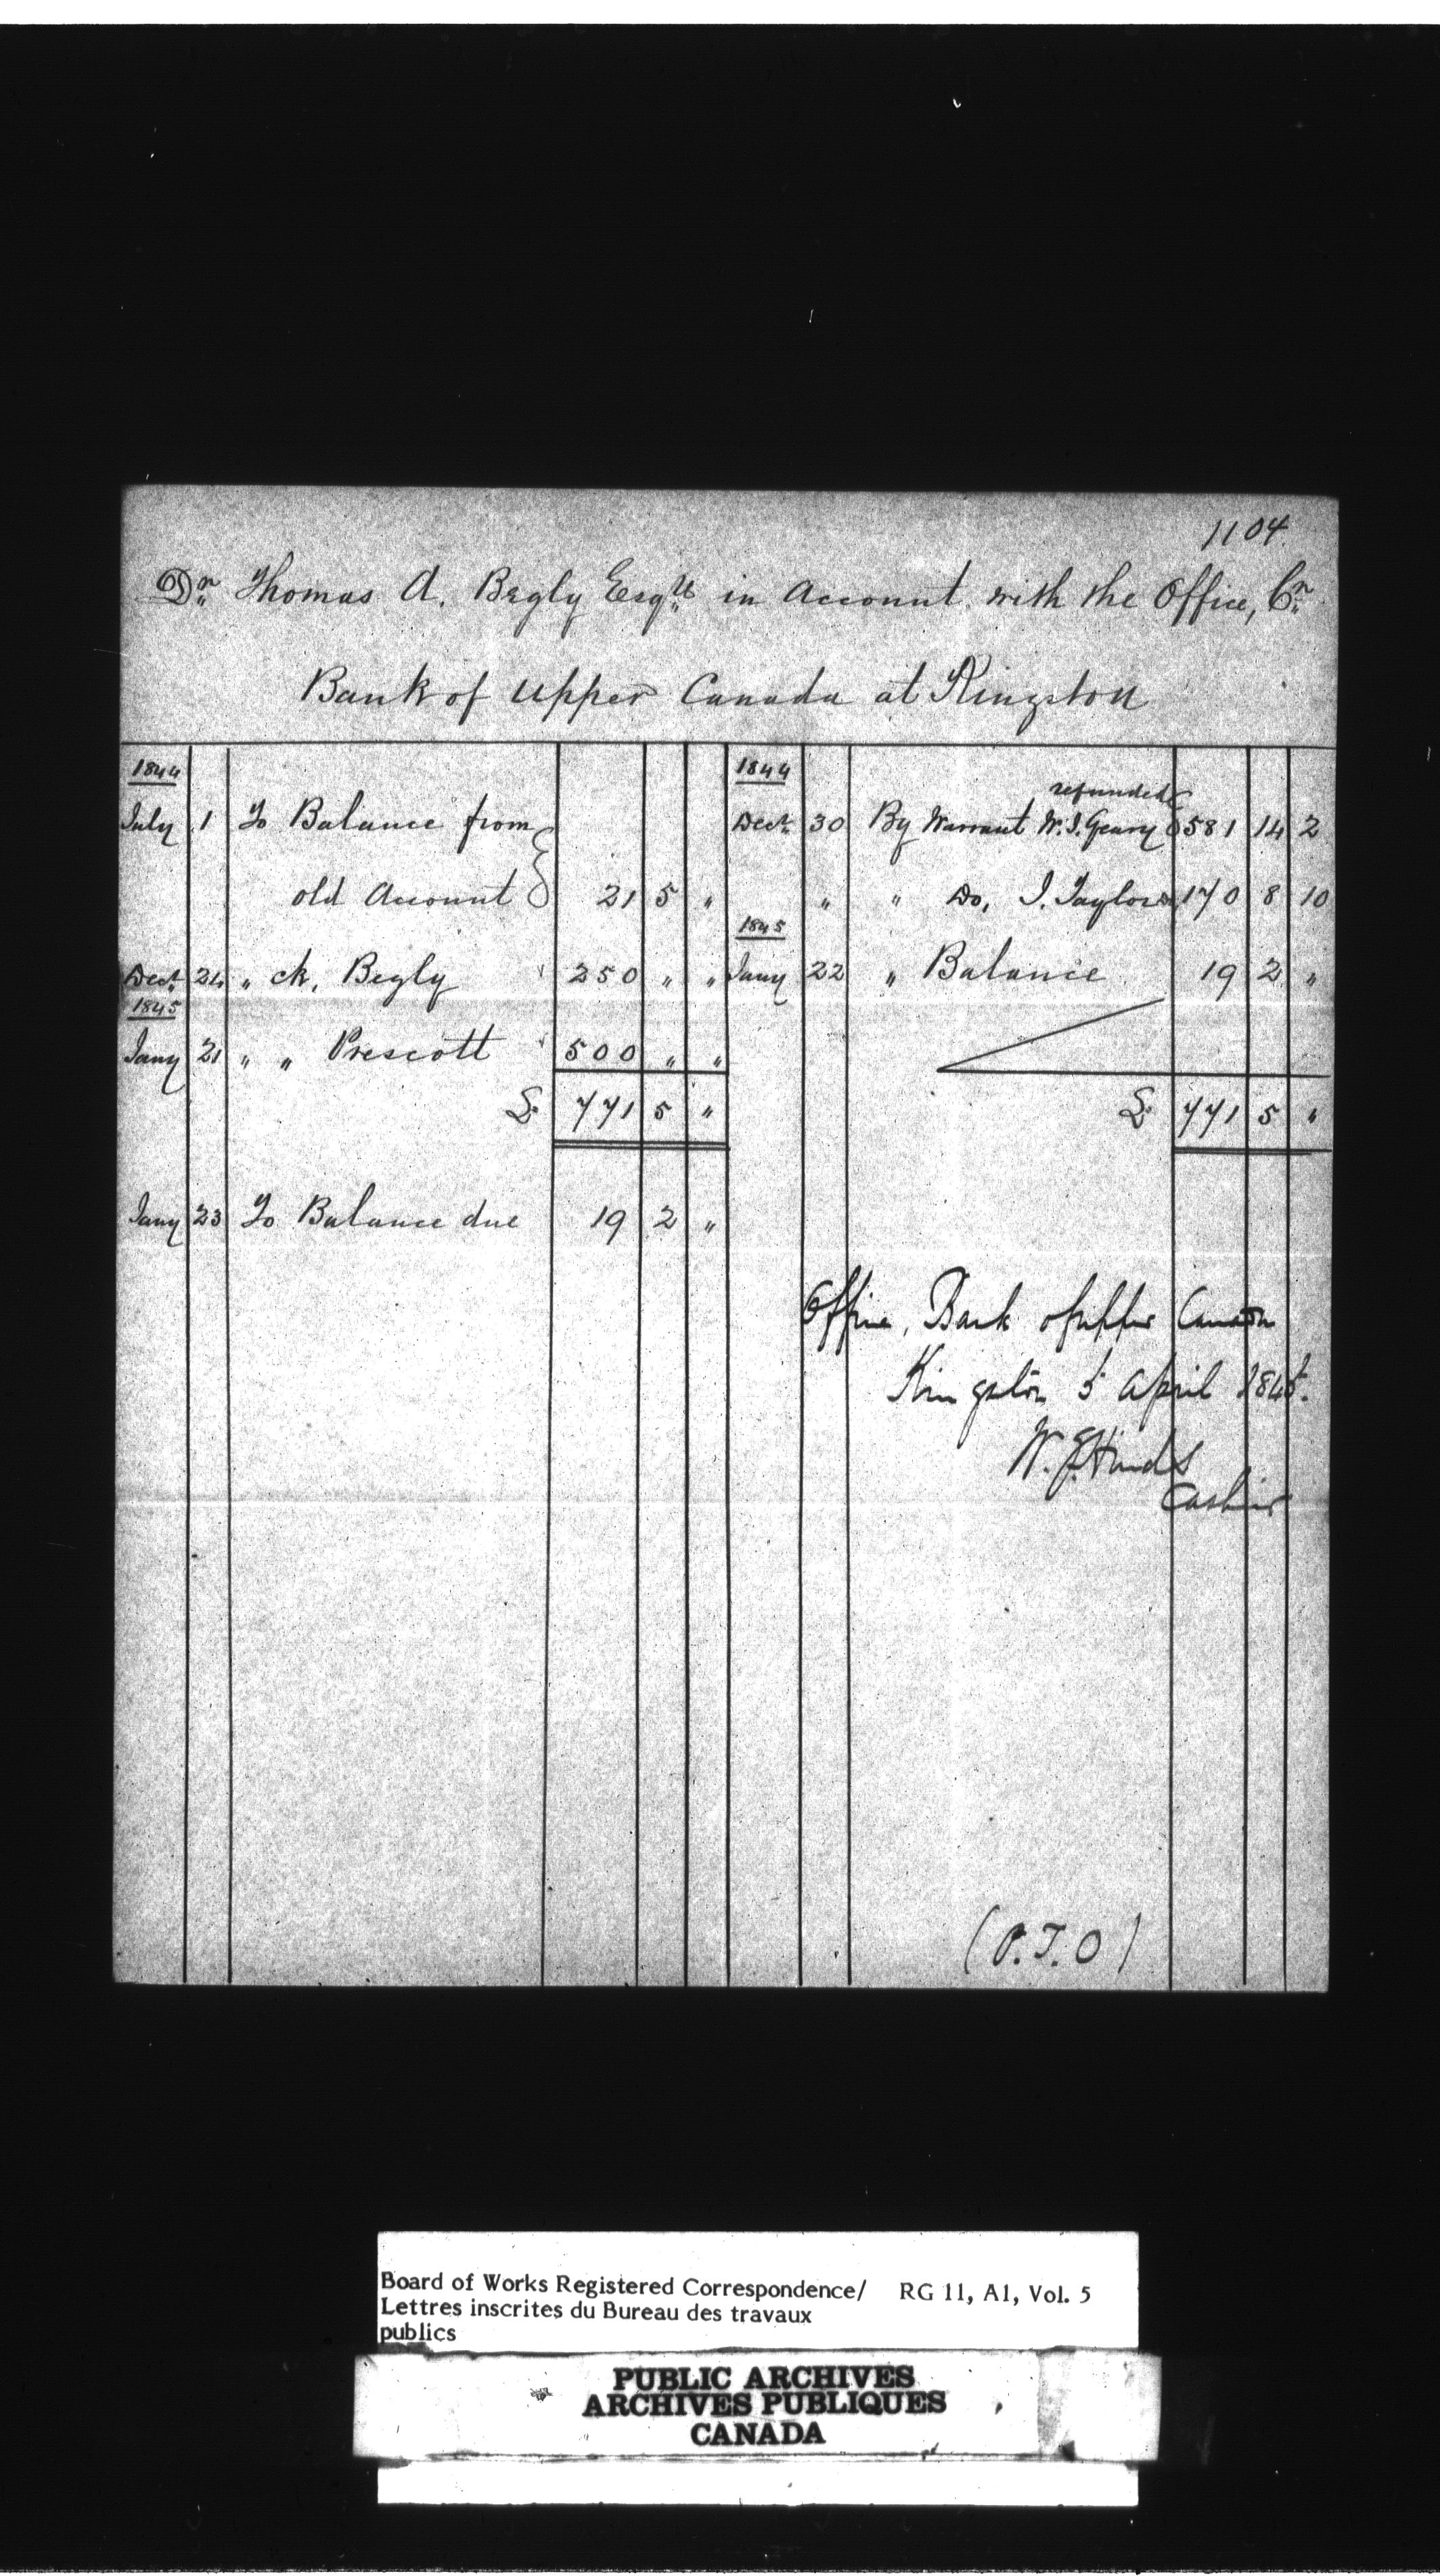 1104
Dr. Thomas A. Begly Esqre in Account with the Office, Cr.
Bank of Upper Canada at Kingston
1844
July 1 To Balance from
old Account 21 5 "
Decr. 24 " ck. Begly 250 " "
1845
Jany 21 " " Prescott 500 " "
£ 771 5 "
Jany 23 To Balance due 19 2 "
1844
refunded
Decr. 30 By Warrant W. J. Geary 581 14 2
" " Do, J. Taylor 170 8 10
1845
Jany 22 " Balance 19 2 "
£ 771 5 "
Office, Bank of Upper Canada
Kingston 5 April 1845.
W. Hinds
Cashier
(P.T.O)
Board of Works Registered Correspondence/ RG 11, A1, Vol. 5
Lettres inscrites du Bureau des travaux
publics
PUBLIC ARCHIVES
ARCHIVES PUBLIQUES
CANADA